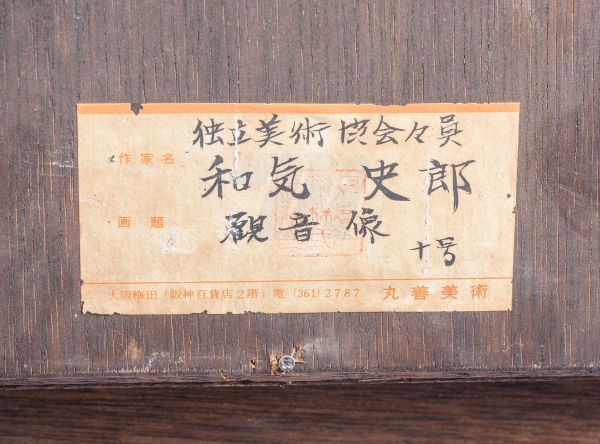 独立美術協会々員
作家名 和気 史郎
画題 観音像
十号
大阪梅田(阪神百貨店2階)電(361)2787 丸善美術